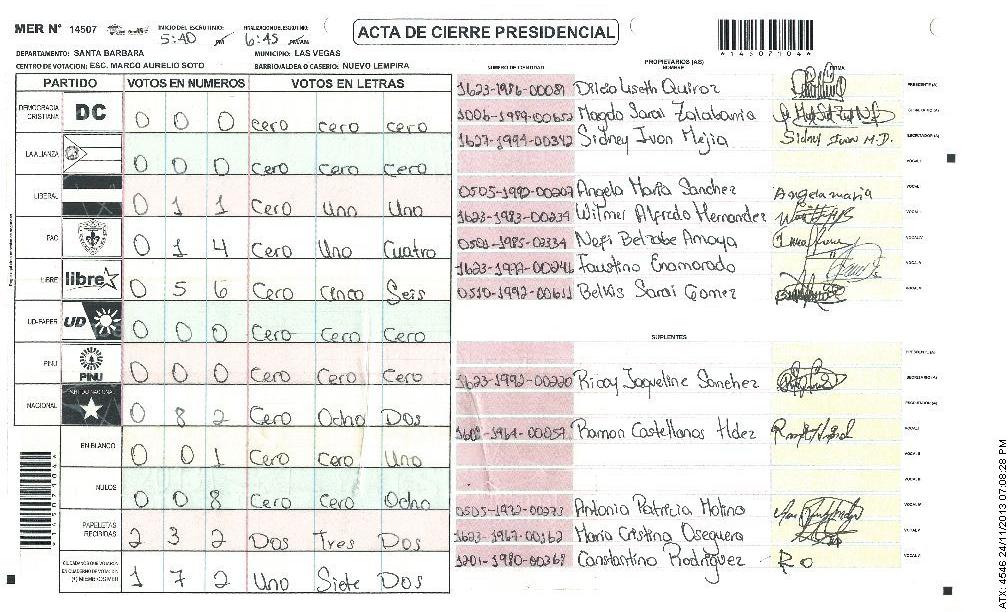 MER N° 14507
INICIO DEL ESCRUTINIO: 5:40 PM
FINALIZACION DEL ESCRUTINIO: 6:45 PM/AM
ACTA DE CIERRE PRESIDENCIAL
*14507104*
DEPARTAMENTO: SANTA BARBARA
MUNICIPIO: LAS VEGAS
CENTRO DE VOTACION: ESC. MARCO AURELIO SOTO
BARRIO/ALDEA O CASERIO: NUEVO LEMPIRA
PARTIDO VOTOS EN NUMEROS VOTOS EN LETRAS
DEMOCRACIA CRISTIANA DC 0 0 0 cero cero cero
LA ALIANZA 0 0 0 Cero Cero Cero
LIBERAL 0 1 1 Cero Uno Uno
PAC 0 1 4 Cero Uno Cuatro
LIBRE libre 0 5 6 Cero Cinco Seis
UD-FAPER UD 0 0 0 Cero Cero Cero
PINU PINU 0 0 0 Cero Cero Cero
NACIONAL PARTIDO NACIONAL 0 8 2 Cero Ocho Dos
EN BLANCO 0 0 1 Cero Cero Uno
NULOS 0 0 8 Cero Cero Ocho
PAPELETAS RECIBIDAS 2 3 2 Dos Tres Dos
CIUDADANOS QUE VOTARON EN CUADERNO DE VOTACION (+) MIEMBROS MER 1 7 2 Uno Siete Dos
*14507104*
PROPIETARIOS (AS)
NUMERO DE IDENTIDAD NOMBRE FIRMA
1623-1986-00081 Quiroz PRESIDENTE (A)
Magda Sarai SECRETARIO (A)
1627-1994-00342 Sidney Ivon Mejia Sidney Ivon M.D. ESCRUTADOR (A)
VOCAL I
Angela Maria Sanchez Angela maria VOCAL
1623-1983-00239 Wilmer Alfredo Hernandez VOCAL
0501-1985-02334 Belzabe Amaya VOCAL IV
Faustino Enamorado VOCAL V
0510-1992-00611 Belkis Sarai Gomez
SUPLENTES
PRESIDENTE (A)
1623-1992-00220 Jaqueline Sanchez SECRETARIO (A)
ESCRUTADOR (A)
Ramon Castellanos Hdez VOCAL I
VOCAL II
Antonia Patricia Molina VOCAL III
1623-1967-00162 Maria Cristina Oseguera VOCAL IV
1201-1980-00368 Constantino Rodriguez VOCAL V
ATX: 4546 24/11/2013 07:08:28 PM